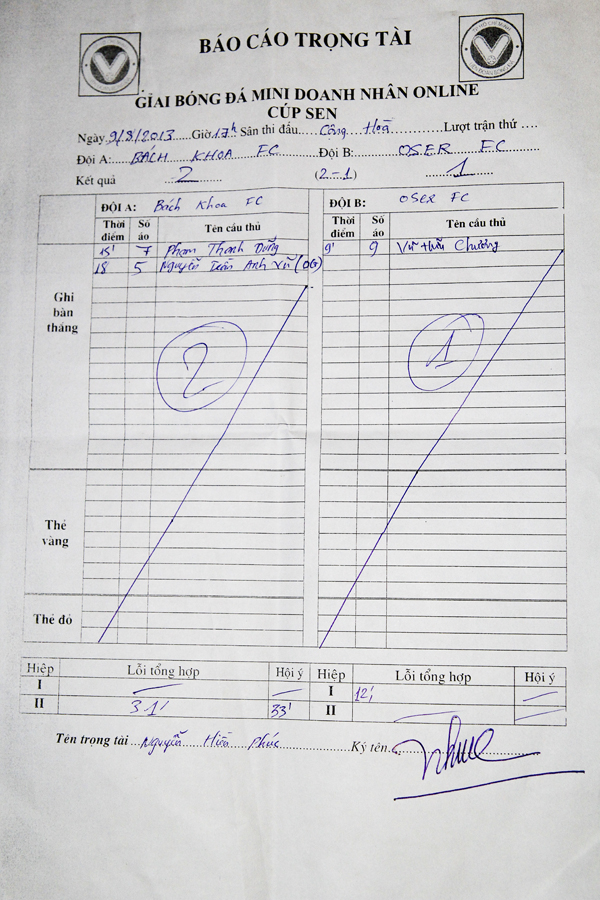 BÁO CÁO TRỌNG TÀI
GIẢI BÓNG ĐÁ MINI DOANH NHÂN ONLINE
CÚP SEN
Ngày 9/8/2013 Giờ 17h Sân thi đấu Cộng Hoà Lượt trận thứ
Đội A: BÁCH KHOA FC Đội B: OSER FC
Kết quả 2 (2-1) 1
ĐỘI A: Bách Khoa FC ĐỘI B: OSER FC
Thời điểm Số áo Tên cầu thủ Thời điểm Số áo Tên cầu thủ
15' 7 Phạm Thanh Dũng 9' 9 Vũ Hữu Chương
18 5 Nguyễn Anh Vũ (OG)
Ghi bàn thắng
2 1
Thẻ vàng
Thẻ đỏ
Hiệp Lỗi tổng hợp Hội ý Hiệp Lỗi tổng hợp Hội ý
I I 12'
II 31' 33' II
Tên trọng tài Nguyễn Phúc Ký tên